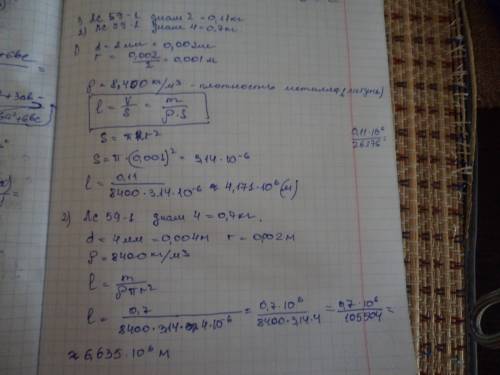 +6bc
1) ЛС 59-1 диам 2 = 0,11кг
2) ЛС 59-1 диам 4 = 0,7кг
1) d = 2 мм = 0,002м
r = 0,002/2 = 0,001 м
ρ = 8,400 кг/м3 - плотность металла (латунь)
l = V/S = m/ρ·S
S = πr²
S = π·(0,001)² = 3,14·10⁻⁶
0,11·10⁶/26376 =
l = 0,11/8400·3,14·10⁻⁶ ≈ 4,171·10⁶ (м)
2) ЛС 59-1 диам 4 = 0,7 кг.
d = 4 мм = 0,004м r = 0,002 м
ρ = 8400 кг/м3
l = m/ρπr²
l = 0,7/8400·3,14·4·10⁻⁶ = 0,7·10⁶/8400·3,14·4 = 0,7·10⁶/105504 =
≈ 6,635·10⁶ м